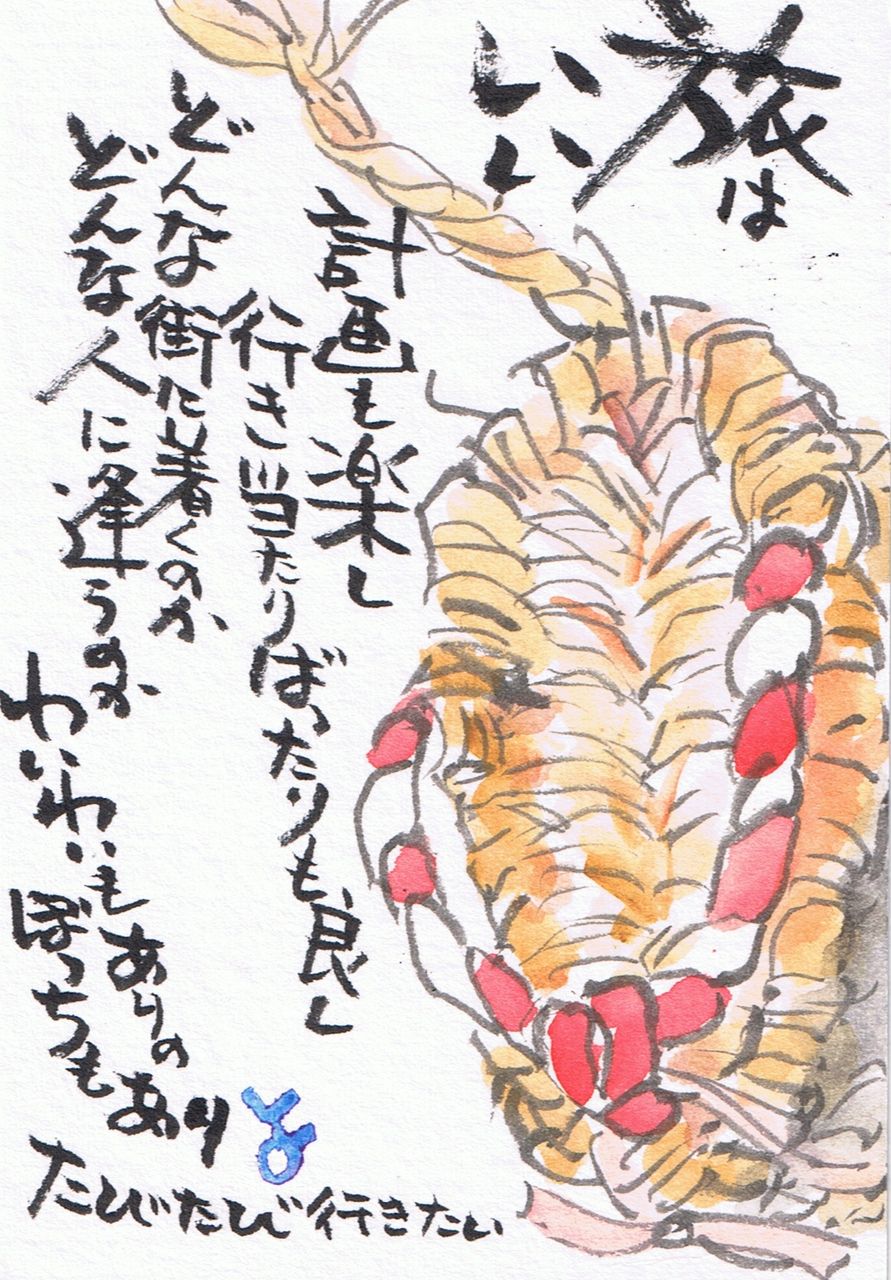 旅は
いい
計画も楽し
行き当たりばったりも良し
どんな街に着くのか
どんな人に逢うのか
わいわいもありの
ぼっちもあり
たびたび行きたい